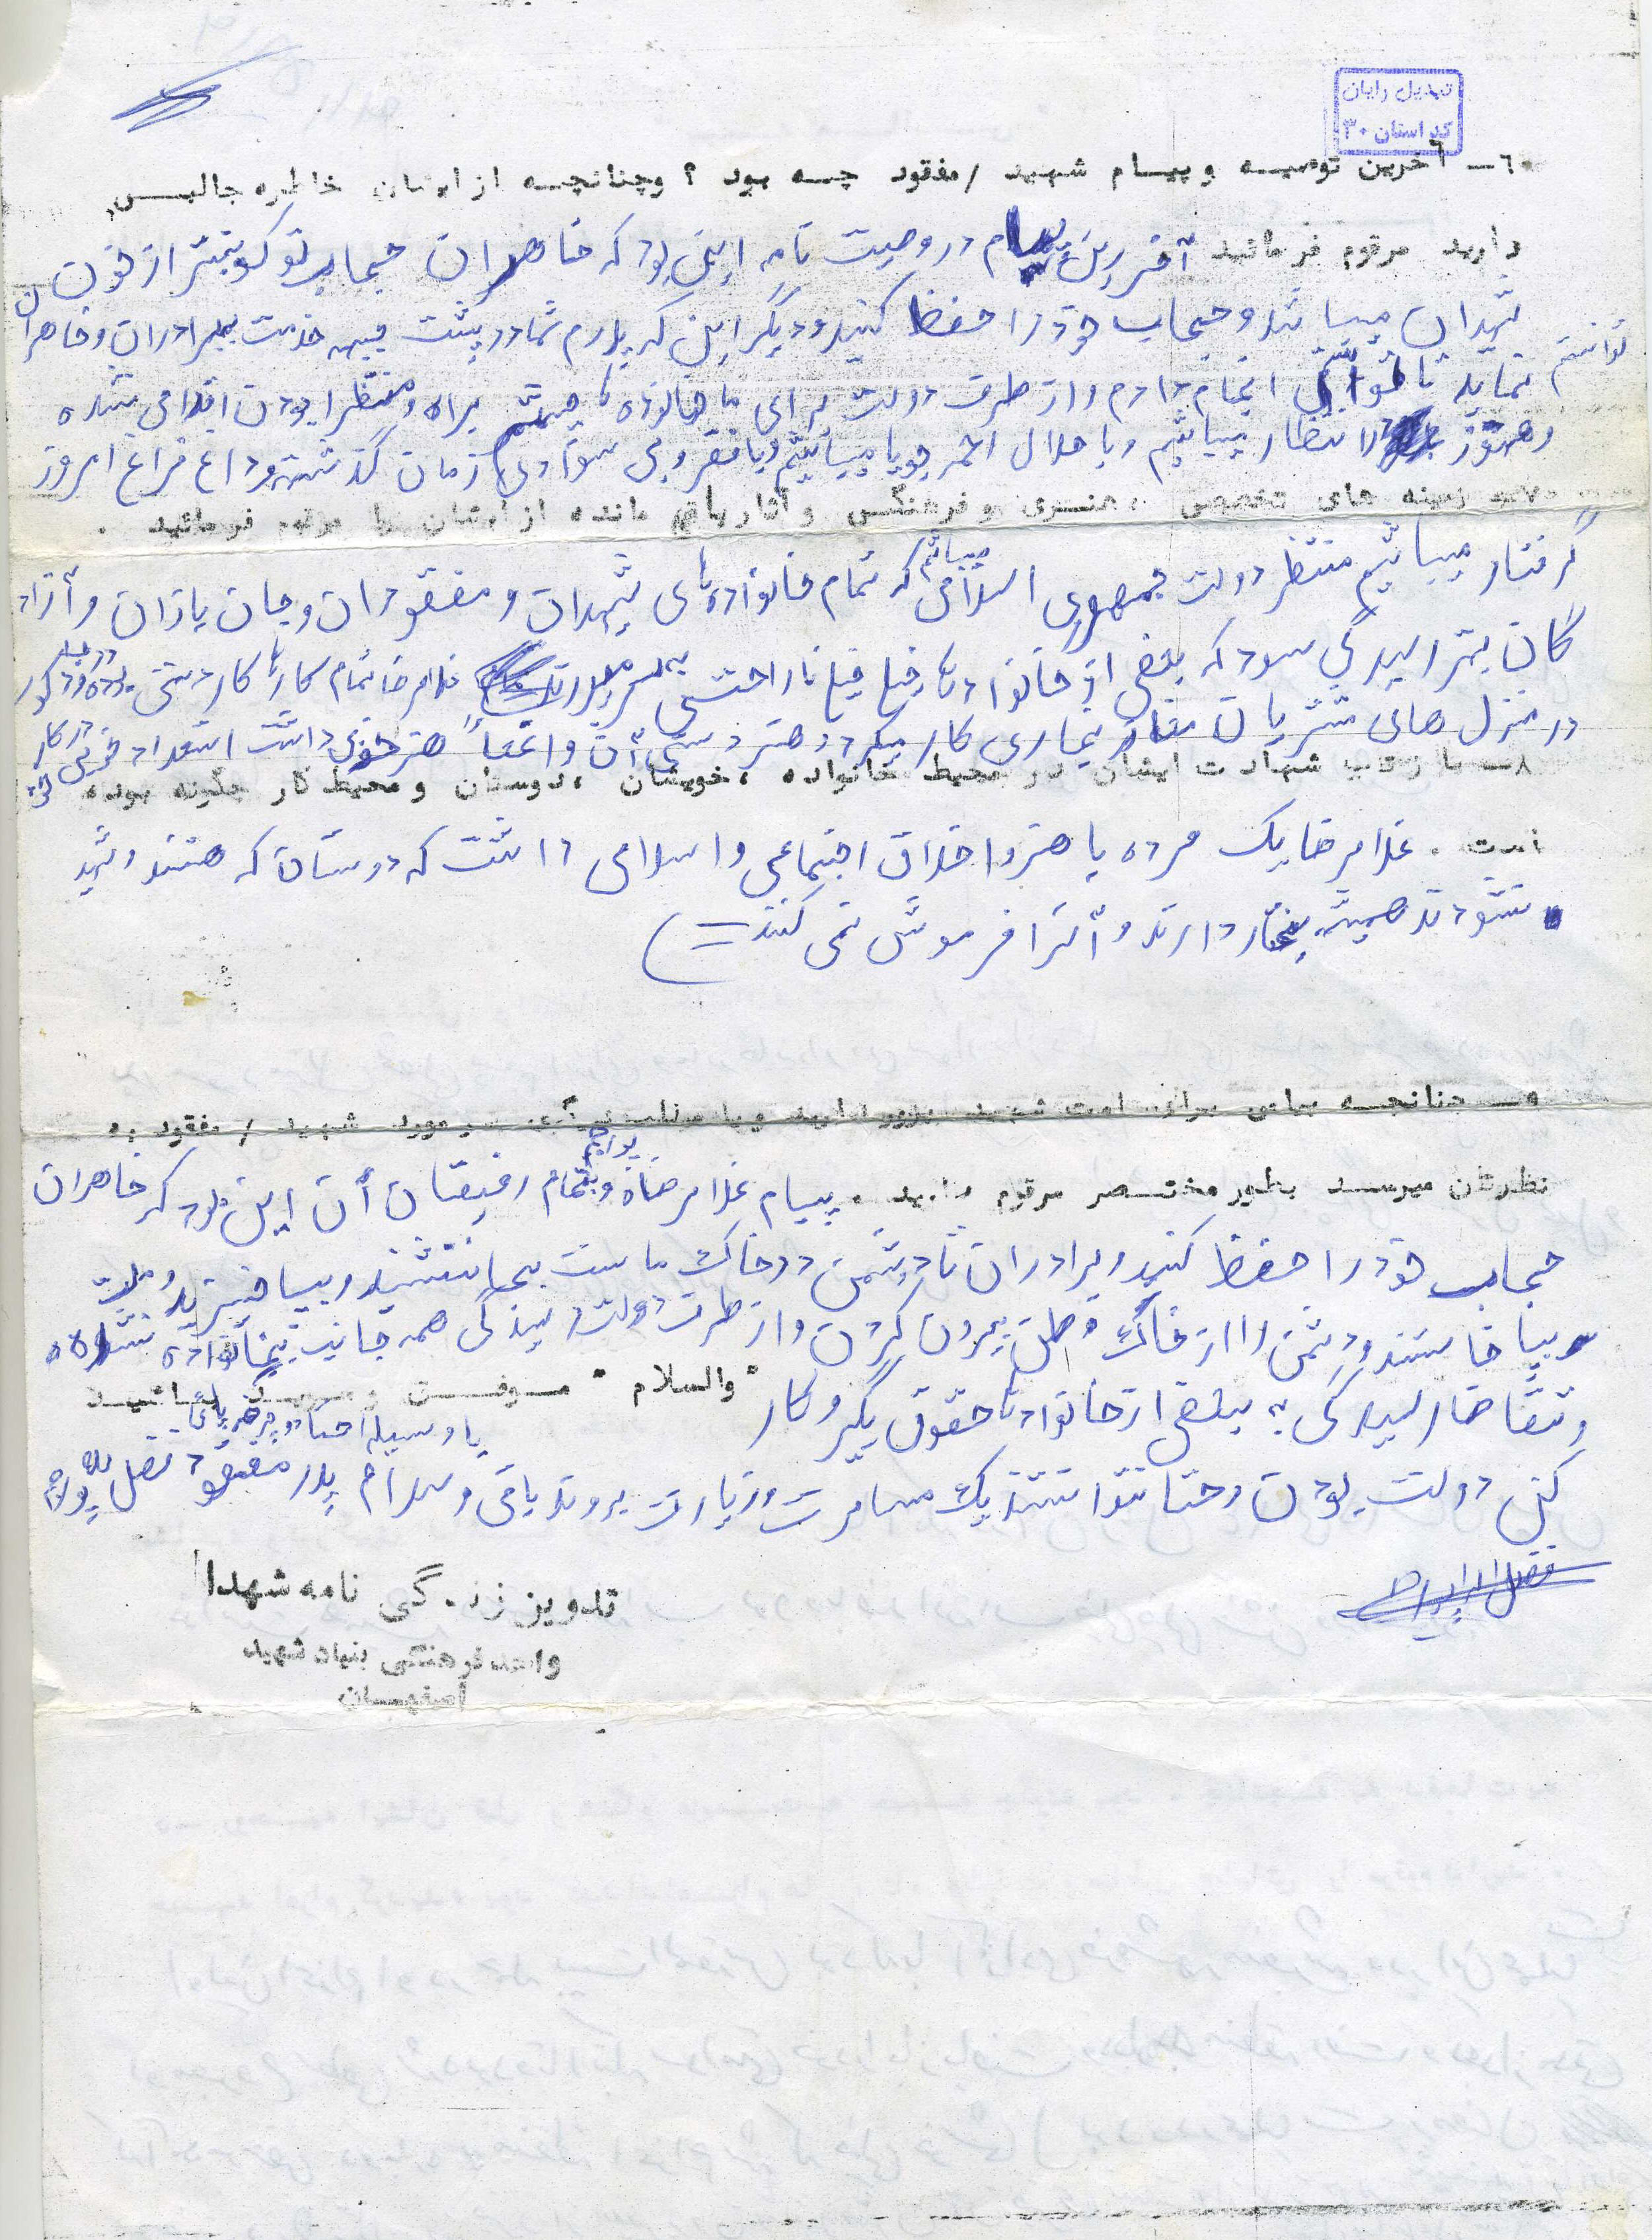 تبدیل رایان
کد استان ۳۰
٦ـ آخرین توصیـه و پیـام شهید /مفقود چـه بود ؟ وچنانچـه از ایشان خاطره جالبـی
دارید مرقوم فرمائید آخررین پیام در وصیت نامه این بود که خاهران حجاب تو کوبنتر از خون
شهدان میباشد و حجاب خود را حفظ کنید و دیگر این که پدرم شما در پشت جبهه خدمت ببرادران و خاهران
نماید تا توانستم انجام دادم و از طرف دولت برای ما خانواده ها چشم براه و منتظر بودن اقدامی نشده
وهنوز در انتظار میباشیم و با حلال احمر جویا میباشیم و با فقر و بی سوادی زمان گذشته و داغ فراغ امروز
۷ـ زمینه های تخصصی ، هنـری و فرهنگـی و آثار باقی مانده از ایشان را مرقوم فرمائید .
گرفتار میباشیم منتظر دولت جمهوری اسلامی میباشم که تمام خانواده های شهدان و مفقودان و جان بازان و آزاد
گان بهتر رسیدگی سود که بعضی از خانواده ها خیلی خیلی ناراحتی بسر میبرند غلامرضا تمام کارها کار دستی بوده
در منزل های مشتریان نجاری کار میکرد و هنر دستی آن واقعاً هنر خوبی داشت استعداد خوبی در کار
۸ـ بازتاب شهادت ایشان در محیط خانواده ، خویشان ، دوستان و محیط کار چگونه بوده
است . غلامرضا یک مرده با هنر و اخلاق اجتماعی و اسلامی داشت که دوستان که هستند و شهید
نشودند همیشه بخار دارند و آنرا فرموش نمی کنند
۹ـ چنانچـه پیامی برای امت شهید پرور دارید و یا مطلب دیگری در مورد شهید / مفقود به
نظرتان میرسـد بطور مختـصر مرقوم دارید . پیام غلامرضا و تمام رفیقان آن این بود که خاهران
حجاب خود را حفظ کنید و برادران تا دشمن در خاک ماست بجا ننشیند و بپا خیزید و ملت
بپا خاستند و دشمن را از خاک وطن بیرون کردن و از طرف دولت رسیدگی همه جانبه بخانواده نشده
"والسلام" مـوفـق و مویـد باشیـد
و تقاضا رسیدگی به بعضی از خانواده ها حقوق بگیر و کار
کنی دولت بودن و حتا نتوانستند یک مسافرت و زیارت بروند باقی و سلام پدر مفقود
تدوین زندگی نامه شهدا
واحد فرهنگی بنیاد شهید
اصفهان